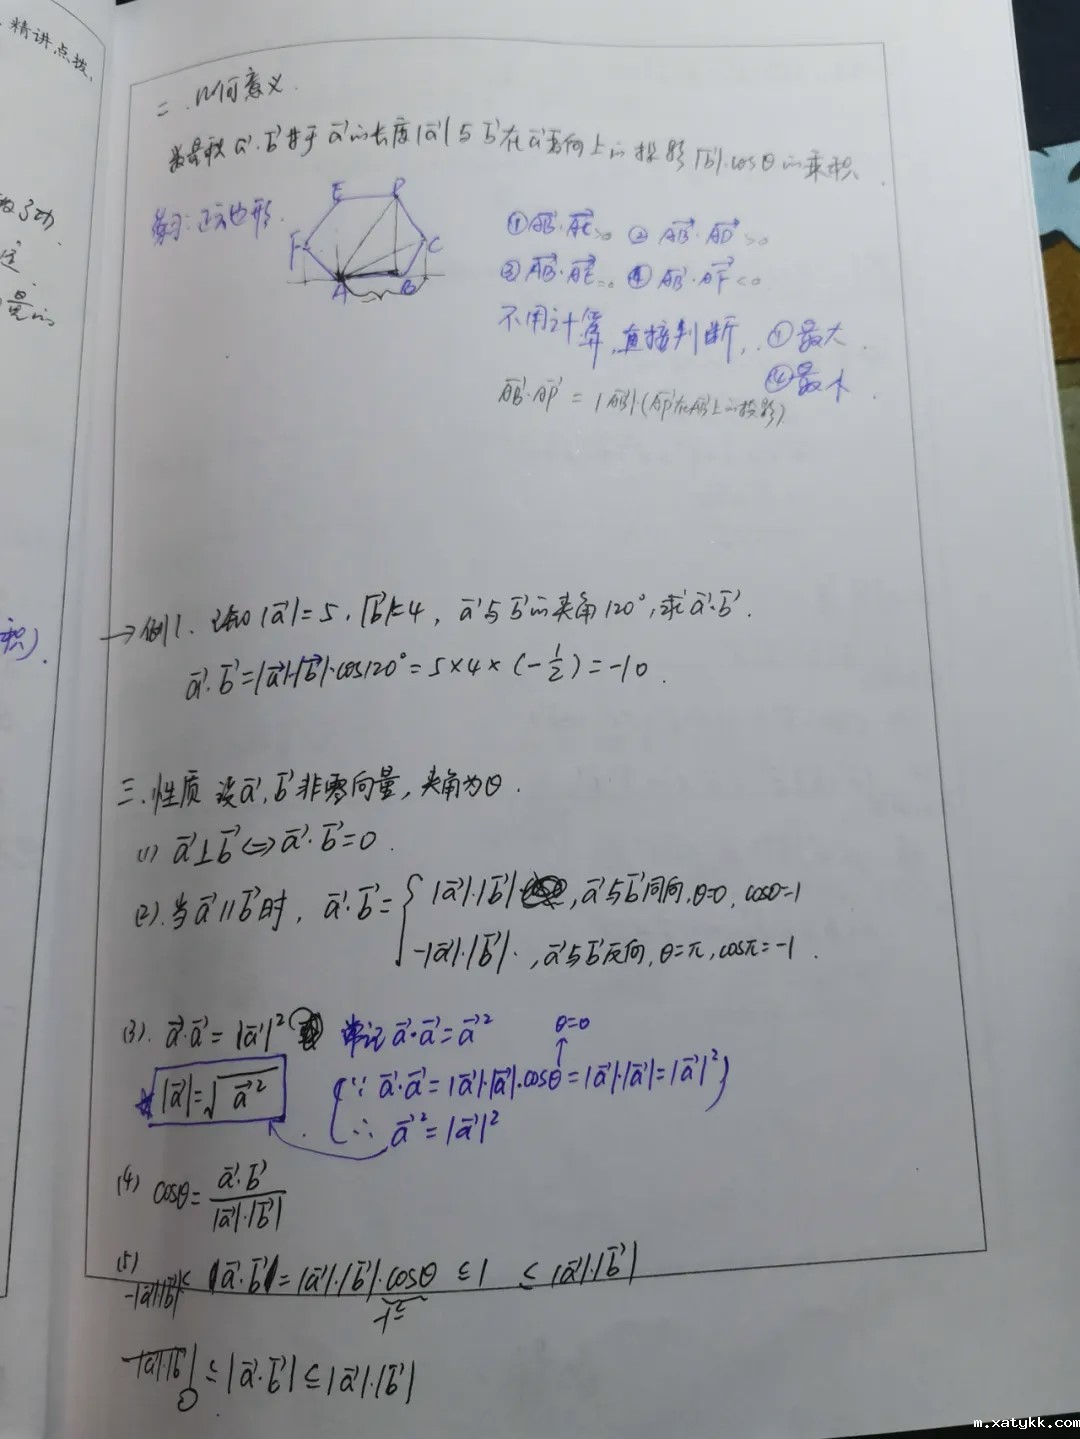 精讲点拨、
二、几何意义.
数量积 a⃗·b⃗ 等于 a⃗的长度|a⃗|与 b⃗在a⃗方向上的投影|b⃗|·cosθ的乘积.
练习:正六边形.
E D
F C
A B
①AB⃗·AC⃗>0 ②AB⃗·AD⃗>0
③AB⃗·AE⃗=0 ④AB⃗·AF⃗<0
不用计算,直接判断,①最大.
④最小.
AB⃗·AP⃗=|AB⃗|(AP⃗在AB⃗上的投影)
积).
→例1、已知|a⃗|=5,|b⃗|=4,a⃗与b⃗的夹角120°,求a⃗·b⃗.
a⃗·b⃗=|a⃗|·|b⃗|·cos120°=5×4×(-1/2)=-10.
三、性质 设a⃗,b⃗非零向量,夹角为θ.
(1) a⃗⊥b⃗⇔a⃗·b⃗=0.
(2).当a⃗∥b⃗时,a⃗·b⃗={|a⃗|·|b⃗|·,a⃗与b⃗同向,θ=0,cosθ=1
-|a⃗|·|b⃗|·,a⃗与b⃗反向,θ=π,cosπ=-1.
(3). a⃗·a⃗=|a⃗|² 常记a⃗·a⃗=a⃗² θ=0
|a⃗|=√a⃗² (∵a⃗·a⃗=|a⃗|·|a⃗|·cosθ=|a⃗|·|a⃗|=|a⃗|²)
∴a⃗²=|a⃗|²
(4) cosθ=a⃗·b⃗/|a⃗|·|b⃗|
(5)
-|a⃗||b⃗|≤|a⃗·b⃗|=|a⃗|·|b⃗|·cosθ≤1 ≤|a⃗|·|b⃗|
-1≤
-|a⃗|·|b⃗|≤|a⃗·b⃗|≤|a⃗|·|b⃗|
0
m.xatykk.com